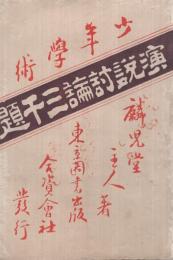 少年學術
演説討論三千題
麟児堂
主人著
東京圖書出版
合資會社
發行